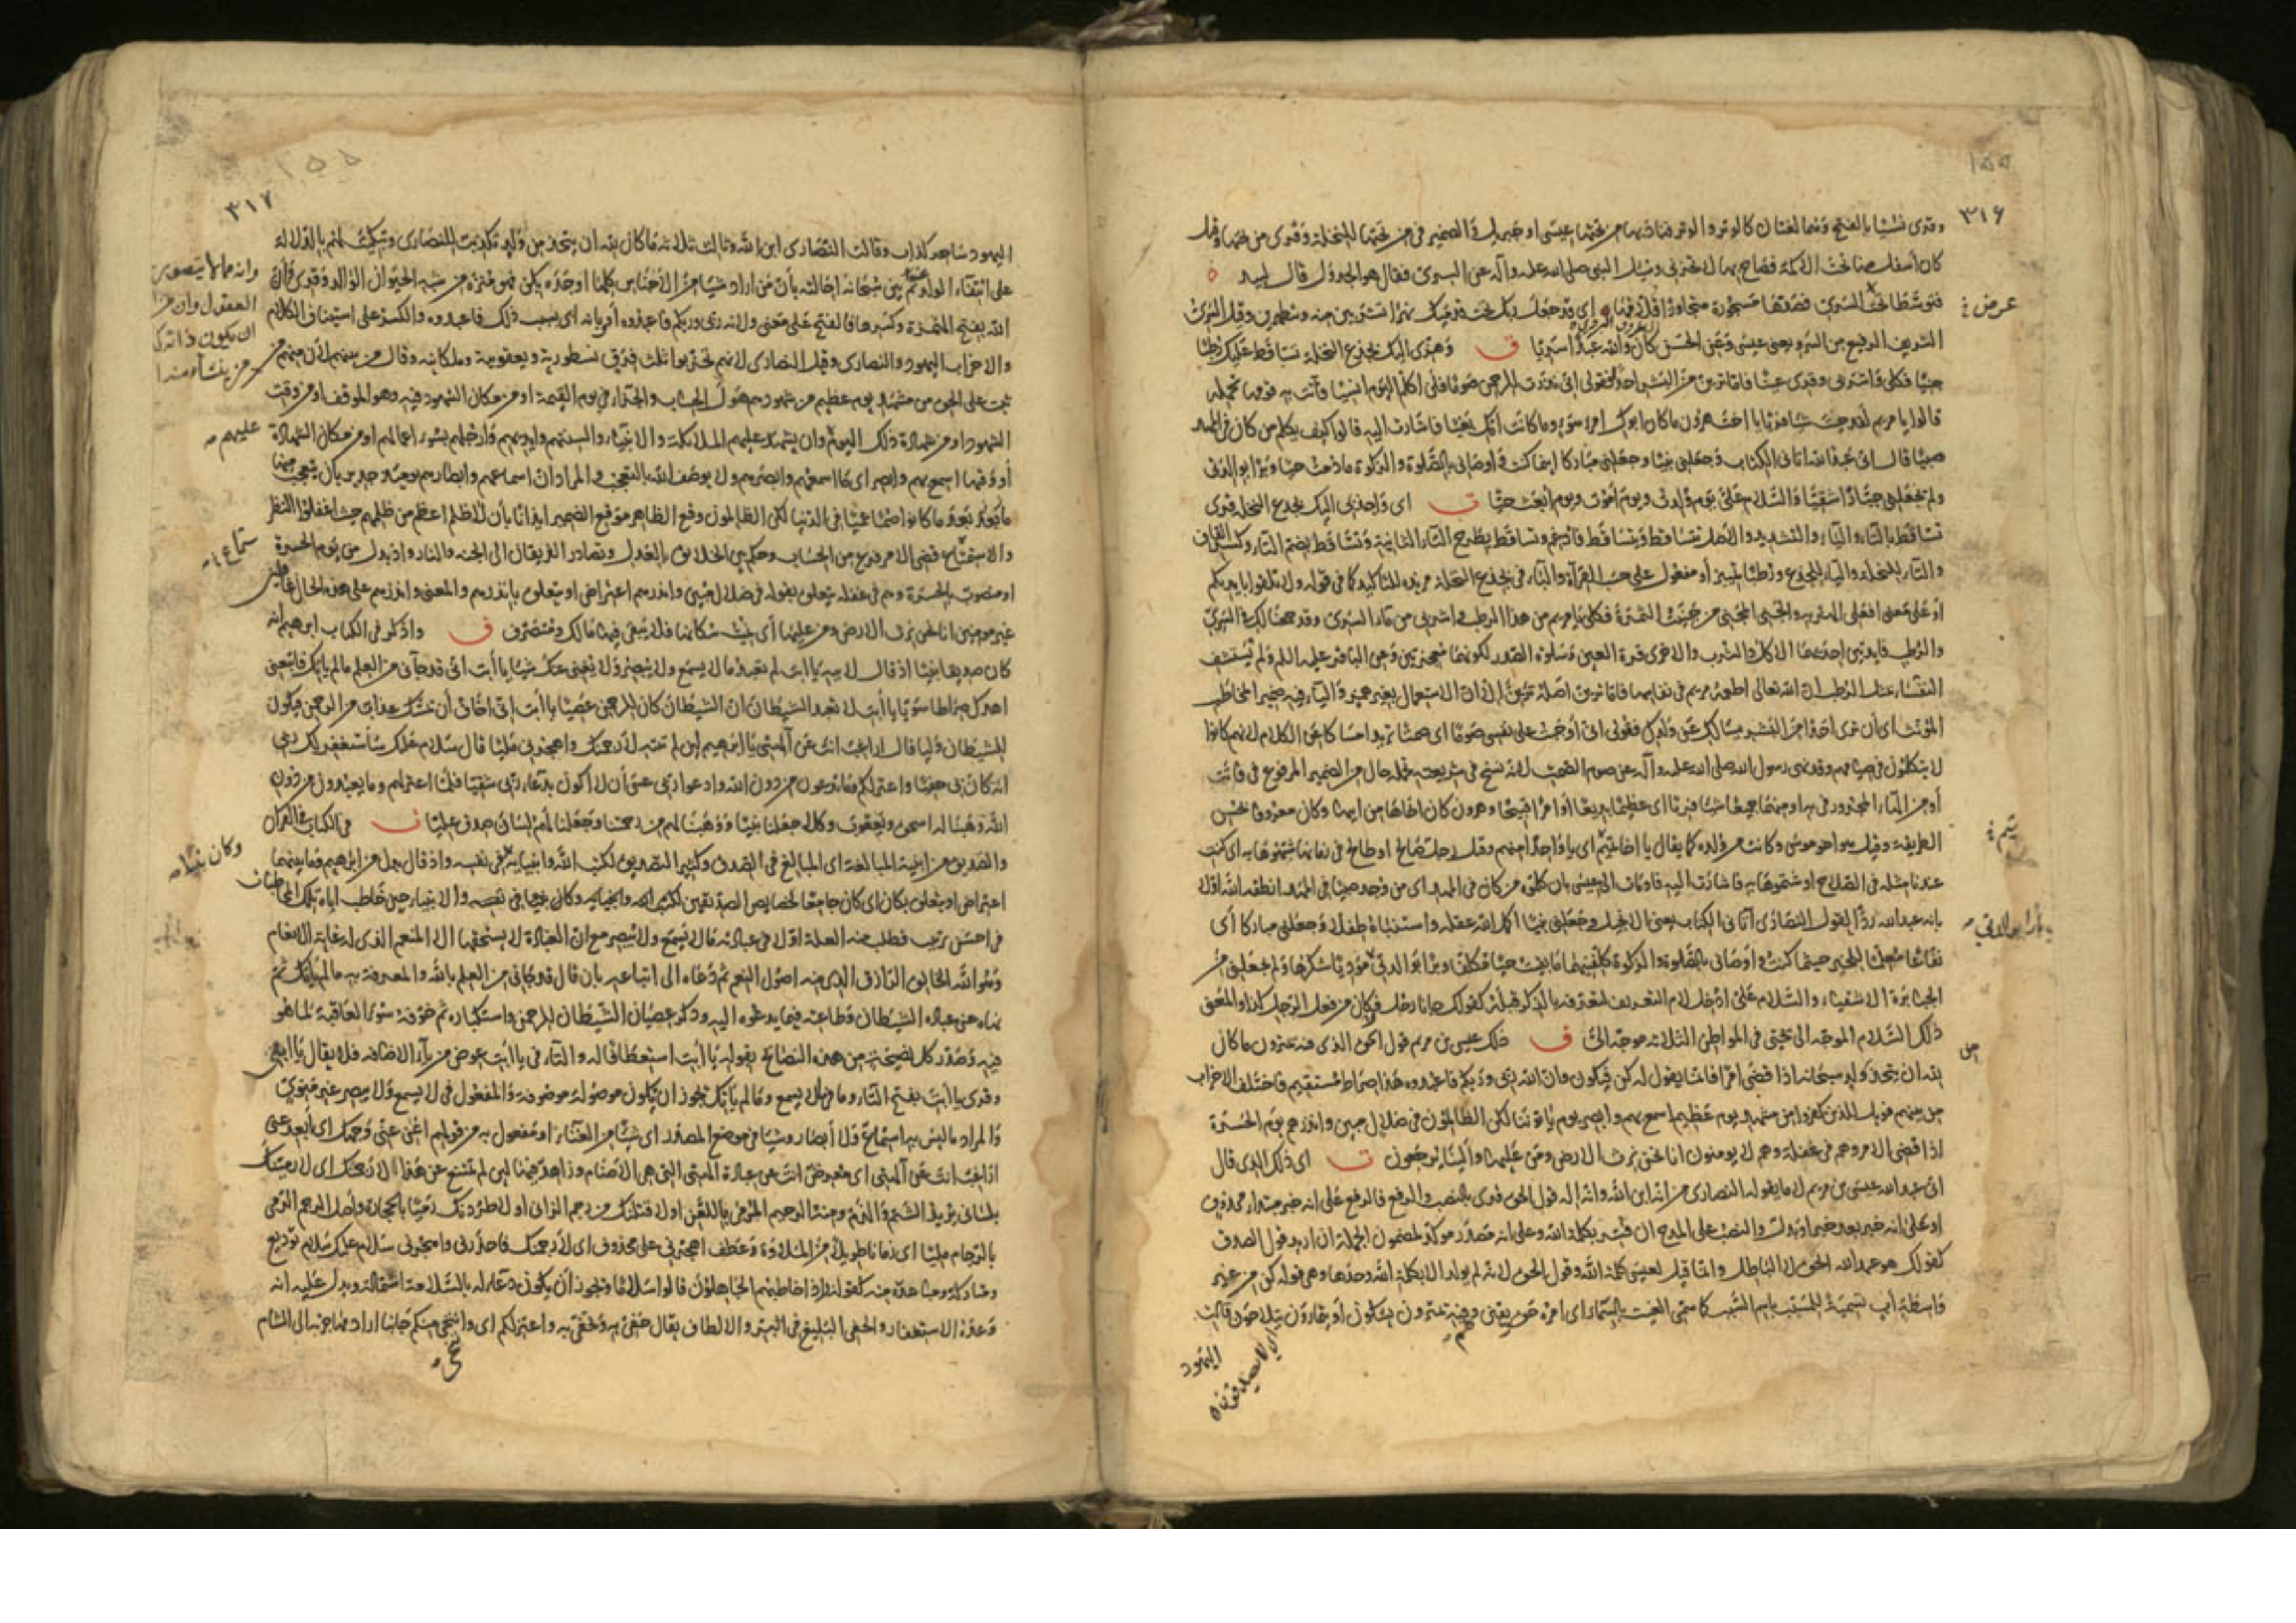 ٣١۶
وقرئ نسيا بالفتح وهما لغتان كالوتر والوتر فناديها من تحتها عيسى او جبريل والضمير في من تحتها للنخلة وقرئ من تحتها وقيل
كان اسفل منها تحت الاكمة فصاح بها ان لا تحزني وسئل النبي صلى الله عليه وآله عن السري فقال هو الجدول قال لبيد
فتوسطا عرض السري فصدعا مسجورة متجاورا قلامها اي قد جعل ربك تحت قدميك نهرا تشربين منه وتطهرين وقيل السري
الشريف الرفيع من السرو يعني عيسى وعن الحسن كان والله عبدا سريا ف وهزي اليك بجذع النخلة تساقط عليك رطبا
جنيا فكلي واشربي وقري عينا فاما ترين من البشر احدا فقولي اني نذرت للرحمن صوما فلن اكلم اليوم انسيا فاتت به قومها تحمله
قالوا يا مريم لقد جئت شيئا فريا يا اخت هرون ما كان ابوك امرء سوء وما كانت امك بغيا فاشارت اليه قالوا كيف نكلم من كان في المهد
صبيا قال اني عبد الله اتاني الكتاب وجعلني نبيا وجعلني مباركا اينما كنت واوصاني بالصلوة والزكوة ما دمت حيا وبرا بوالدتي
ولم يجعلني جبارا شقيا والسلام علي يوم ولدت ويوم اموت ويوم ابعث حيا ت اي واجذبي اليك بجذع النخلة قرئ
تساقط بالتاء والياء والتشديد والاصل تتساقط ويتساقط فادغم وتساقط بطرح التاء الثانية وتساقط بضم التاء وكسر القاف
والتاء للنخلة والياء للجذع ورطبا تمييز أو مفعول على حسب القراءة والباء في بجذع النخلة مزيدة للتاكيد كما في قوله ولا تلقوا بايديكم
او على معنى افعلي الهز به والجني المجني من جنيت الثمرة فكلي يا مريم من هذا الرطب واشربي من ماء السري وقد جمعنا لك في السري
والرطب فايدتين احديهما الاكل والشرب والاخرى قرة العين وسلوة الصدر لكونهما معجزتين وعن الباقر عليه السلم ولم تستشف
النفساء بمثل الرطب ان الله تعالى اطعمه مريم في نفاسها فاما ترين اصله ترئين الا ان الاستعمال بغير همز والياء فيه ضمير المخاطب
المؤنث اي ان تري احدا من البشر يسالك عن ولدك فقولي اني أوجبت على نفسي صوما اي صمتا تريد امساكا عن الكلام لانهم كانوا
لا يتكلمون في صيامهم وقد نهى رسول الله صلى الله عليه وآله عن صوم الصمت لانه نسخ في شريعته تحمله حال من الضمير المرفوع في فاتت
أو من الهاء المجرور في به او منهما جميعا شيئا فريا اي عظيما بديعا أو امرا قبيحا وهرون كان اخاها من ابيها وكان معروفا بحسن
الطريقة وقيل هو اخو موسى وكانت من ولده كما يقال يا اخا تميم اي يا واحدا منهم وقيل رجل صالح او طالح في زمانها شبهوها به اي كنت
عندنا مثله في الصلاح او شتموها به فاشارت اليه فاومات الى عيسى بان كلموه من كان في المهد اي من وجد صبيا في المهد انطقه الله اولا
بانه عبد الله ردا لقول النصارى آتاني الكتاب يعني الانجيل وجعلني نبيا اكمل الله عقله واستنباه طفلا وجعلني مباركا أي
نفاعا معلما للخير حيثما كنت واوصاني بالصلوة والزكوة كلفنيهما ما بقيت حيا مكلفا وبرا بوالدتي مؤديا شكرها ولم يجعلني من
الجبابرة الاشقياء والسلام علي ادخل لام التعريف لتعرفه بالذكر قبله كقولك جاءنا رجل فكان من فعل الرجل كذا والمعنى
ذلك السلام الموجه الى يحيى في المواطن الثلاثة موجه الي ف ذلك عيسى بن مريم قول الحق الذي فيه يمترون ما كان
لله ان يتخذ من ولد سبحانه اذا قضى امرا فانما يقول له كن فيكون وان الله ربي وربكم فاعبدوه هذا صراط مستقيم فاختلف الاحزاب
من بينهم فويل للذين كفروا من مشهد يوم عظيم اسمع بهم وابصر يوم يأتوننا لكن الظالمون في ضلال مبين وانذرهم يوم الحسرة
اذا قضي الامر وهم في غفلة وهم لا يومنون انا نحن نرث الارض ومن عليها والينا يرجعون ت اي ذلك الذي قال
اني عبد الله عيسى بن مريم لا ما يقوله النصارى من انه ابن الله وانه اله قول الحق قرئ بالنصب والرفع فالرفع على انه خبر مبتداء محذوف
او على انه خبر بعد خبر او بدل والنصب على المدح ان فسر بكلمة الله وعلى انه مصدر موكد لمضمون الجملة ان اريد قول الصدق
كقولك هو عبد الله الحق لا الباطل وانما قيل لعيسى كلمة الله وقول الحق لانه لم يولد الا بكلمة الله وحدها وهي قوله كن من غير
واسطة أب تسمية للمسبب باسم السبب كما سمي الغيث بالسماء اي امره حق يقين وهم فيه يمترون يشكون أو يتمارون يتلاحون قالت
اليهود
عرض
تميم
وبرا بوالدتي
من
٣١٧
اليهود ساحر كذاب وقالت النصارى ابن الله وثالث ثلاثة ما كان لله ان يتخذ من ولد تكذيب للنصارى وتبكيت لهم بالدلالة
على انتفاء الولد عنه ثم بين سبحانه احالته بأن من اراد شيئا من الاجناس كلها اوجده بكن فهو منزه من شبه الحيوان الوالد وقرئ وأن
الله بفتح الهمزة وكسرها فالفتح على معنى ولانه ربي وربكم فاعبدوه أو بانه اي بسبب ذلك فاعبدوه والكسر على استيناف الكلام
والاحزاب اليهود والنصارى وقيل النصارى لانهم تحزبوا ثلث فرق نسطورية ويعقوبية وملكانية وقال من بينهم لان منهم من
ثبت على الحق من مشهد يوم عظيم من شهودهم هول الحساب والجزاء في يوم القيمة او من مكان الشهود فيه وهو الموقف او من وقت
الشهود او من شهادة ذلك اليوم وان يشهد عليهم الملائكة والانبياء والسنتهم وايديهم وارجلهم بسوء اعمالهم او من مكان الشهادة
أو وقتها اسمع بهم وابصر اي ما اسمعهم وابصرهم ولا يوصف الله بالتعجب والمراد ان اسماعهم وابصارهم يومئذ جدير بان يتعجب منها
بعد ما كانوا صما عميا في الدنيا لكن الظالمون وقع الظاهر موقع الضمير ايذانا بأن لا ظلم اعظم من ظلمهم حيث اغفلوا النظر
والاستماع قضي الامر فرغ من الحساب وحكم بين الخلائق بالعدل وتصادر الفريقان الى الجنة والنار واذ بدل من يوم الحسرة
او منصوب بالحسرة وهم في غفلة يتعلق بقوله في ضلال مبين وانذرهم اعتراض او يتعلق بانذرهم والمعنى وانذرهم على هذه الحال غافلين
غير مومنين انا نحن نرث الارض ومن عليها أي نميت سكانها فلا يبقى فيها مالك ومتصرف ف واذكر في الكتاب ابرهيم انه
كان صديقا نبيا اذ قال لابيه يا ابت لم تعبد ما لا يسمع ولا يبصر ولا يغني عنك شيئا يا أبت اني قد جاءني من العلم ما لم يأتك فاتبعني
اهدك صراطا سويا يا أبت لا تعبد الشيطان ان الشيطان كان للرحمن عصيا يا أبت اني اخاف أن يمسك عذاب من الرحمن فتكون
للشيطان وليا قال اراغب انت عن آلهتي يا ابرهيم لئن لم تنته لارجمنك واهجرني مليا قال سلام عليك سأستغفر لك ربي
انه كان بي حفيا واعتزلكم وما تدعون من دون الله وادعوا ربي عسى أن لا اكون بدعاء ربي شقيا فلما اعتزلهم وما يعبدون من دون
الله وهبنا له اسحق ويعقوب وكلا جعلنا نبيا ووهبنا لهم من رحمتنا وجعلنا لهم لسان صدق عليا ت في الكتاب في القرآن
والصديق من ابنية المبالغة اي المبالغ في الصدق وكثير التصديق لكتب الله وانبيائه في نفسه واذ قال بدل من ابرهيم وما بينهما
اعتراض او يتعلق بكان اي كان جامعا لخصايص الصديقين والانبياء حين خاطب اياه بتلك المخاطبات
في احسن ترتيب فطلب منه العلة اولا في عبادته ما لا يسمع ولا يبصر مع ان العبادة لا يستحقها الا المنعم الذي له غاية الانعام
وهو الله الخالق الرازق الذي منه اصول النعم ثم دعاه الى اتباعه بان قال قد جاءني من العلم بالله والمعرفة به ما لم يأتك ثم
نهاه عن عبادة الشيطان وطاعته فيما يدعوه اليه وذكر عصيان الشيطان للرحمن واستكباره ثم خوفه سوء العاقبة لما هو
فيه وصدر كل نصيحة من هذه النصائح بقوله يا أبت استعطافا له والتاء في يا أبت عوض من ياء الاضافة فلا يقال يا ابتي
وقرئ يا أبت بفتح التاء وما في ما لا يسمع وما لم يأتك يجوز ان يكون موصولة وموصوفة والمفعول في لا يسمع ولا يبصر غير منوي
والمراد ما ليس به استماع ولا أبصار وشيئا في موضع المصدر اي شيئا من الغناء او مفعول به من قولهم اغن عني وجهك اي أبعد عني
اراغب انت عن آلهتي اي معرض انت عن عبادة آلهتي التي هي الاصنام وزاهد فيها لئن لم تمتنع عن هذا لارجمنك اي لارمينك
بلساني يريد الشتم والذم ومنه الرجيم المرمي باللعن او لاقتلنك من رجم الزاني او لاطردنك رميا بالحجارة واصل الرجم الرمي
بالرجام مليا اي زمانا طويلا من الملاوة وعطف اهجرني على محذوف اي لارجمنك فاحذرني واهجرني سلام عليك سلام توديع
ومتاركة ومباعدة منه كقوله واذا خاطبهم الجاهلون قالوا سلاما ويجوز أن يكون دعا له بالسلامة استمالة ويدل عليه انه
وعده الاستغفار والحفي البليغ في البر والالطاف يقال حفي به وتحفى به واعتزلكم اي واتنحى منكم جانبا اراد مهاجرته الى الشام
وانه مما لا يتصور
العقول وان من
ان يكون ذاته كـ
من ينشأ منه
عليهم
وكان نبيا